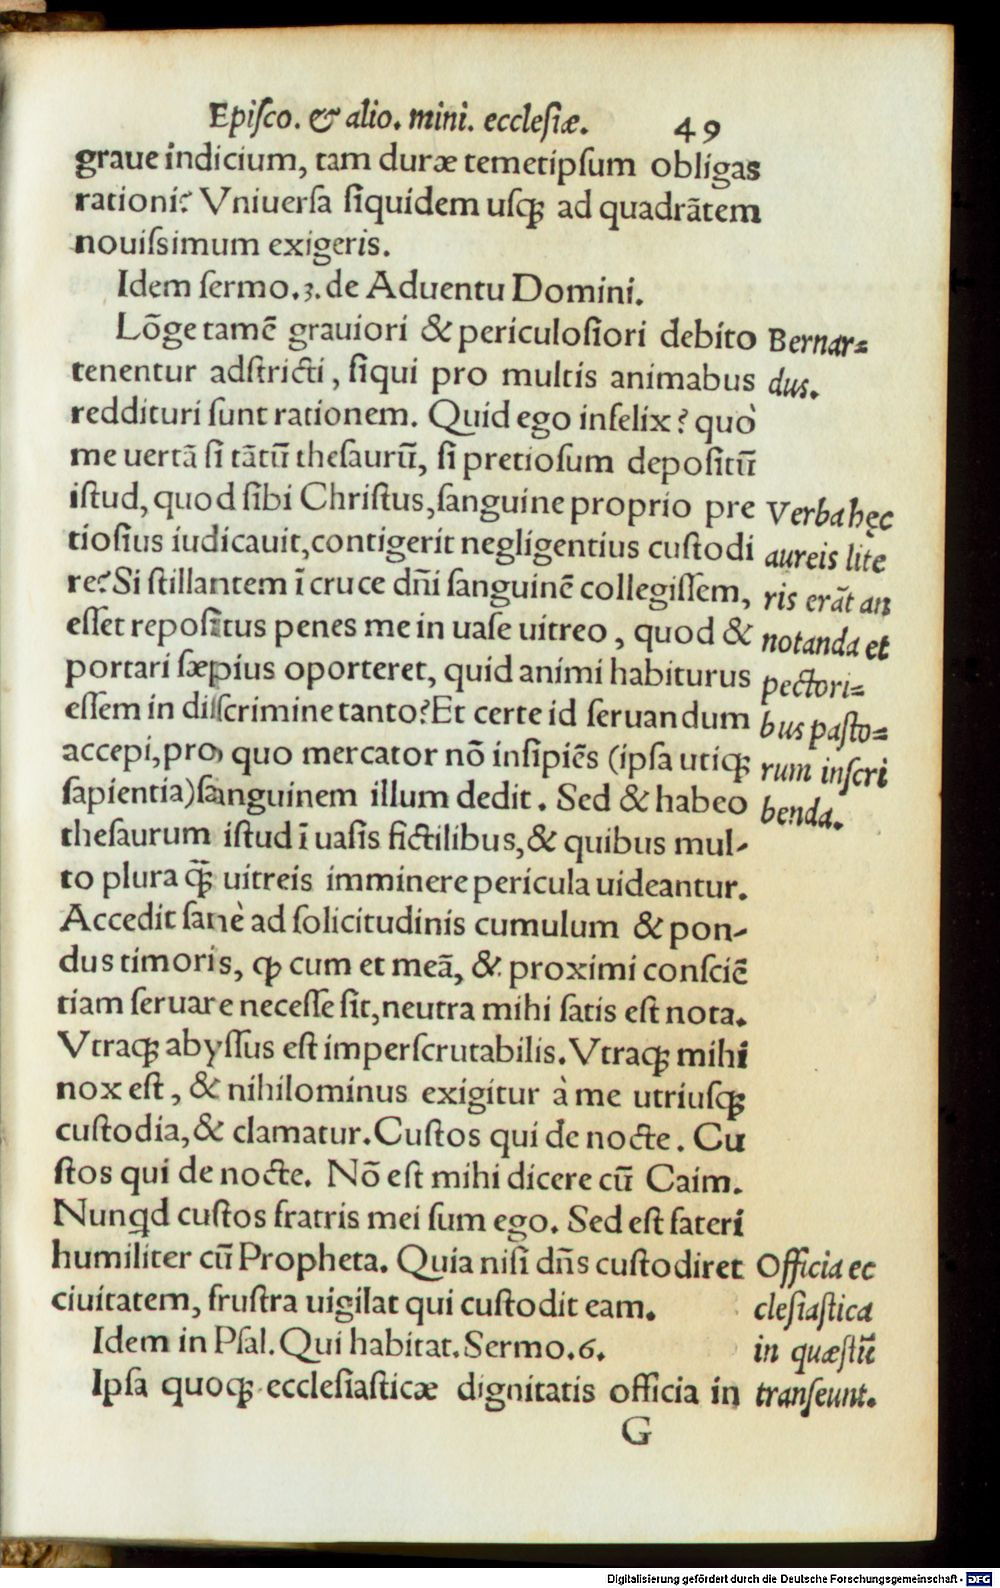 Epiſco. & alio. mini. eccleſiæ. 49
graue indicium, tam duræ temetipſum obligas
rationi? Vniuerſa ſiquidem uſq; ad quadrātem
nouiſsimum exigeris.
Idem ſermo.3.de Aduentu Domini.
Lōge tamē grauiori & periculoſiori debito
tenentur adſtricti, ſiqui pro multis animabus
reddituri ſunt rationem. Quid ego infelix? quò
me uertā ſi tātū theſaurū, ſi pretioſum depoſitū
iſtud, quod ſibi Chriſtus, ſanguine proprio pre
tioſius iudicauit, contigerit negligentius cuſtodi
re? Si ſtillantem ī cruce dn̄i ſanguinē collegiſſem,
eſſet repoſitus penes me in uaſe uitreo, quod &
portari ſæpius oporteret, quid animi habiturus
eſſem in diſcrimine tanto? Et certe id ſeruandum
accepi, pro quo mercator nō inſipiēs (ipſa utiq;
ſapientia) ſanguinem illum dedit. Sed & habeo
theſaurum iſtud ī uaſis fictilibus, & quibus mul-
to plura q̄; uitreis imminere pericula uideantur.
Accedit ſanè ad ſolicitudinis cumulum & pon-
dus timoris, ꝙ cum et meā, & proximi conſciē
tiam ſeruare neceſſe ſit, neutra mihi ſatis eſt nota.
Vtraq; abyſſus eſt imperſcrutabilis. Vtraq; mihi
nox eſt, & nihilominus exigitur à me utriuſq;
cuſtodia, & clamatur. Cuſtos qui de nocte. Cu
ſtos qui de nocte. Nō eſt mihi dicere cū Caim.
Nunqd cuſtos fratris mei ſum ego. Sed eſt fateri
humiliter cū Propheta. Quia niſi dn̄s cuſtodiret
ciuitatem, fruſtra uigilat qui cuſtodit eam.
Idem in Pſal. Qui habitat. Sermo.6.
Ipſa quoq; eccleſiaſticæ dignitatis officia in
G
Bernar=
dus.
Verba hęc
aureis lite
ris erāt an
notanda et
pectori=
bus paſto=
rum inſcri
benda.
Officia ec
cleſiaſtica
in quæſtū
tranſeunt.
Digitalisierung gefördert durch die Deutsche Forschungsgemeinschaft - DFG